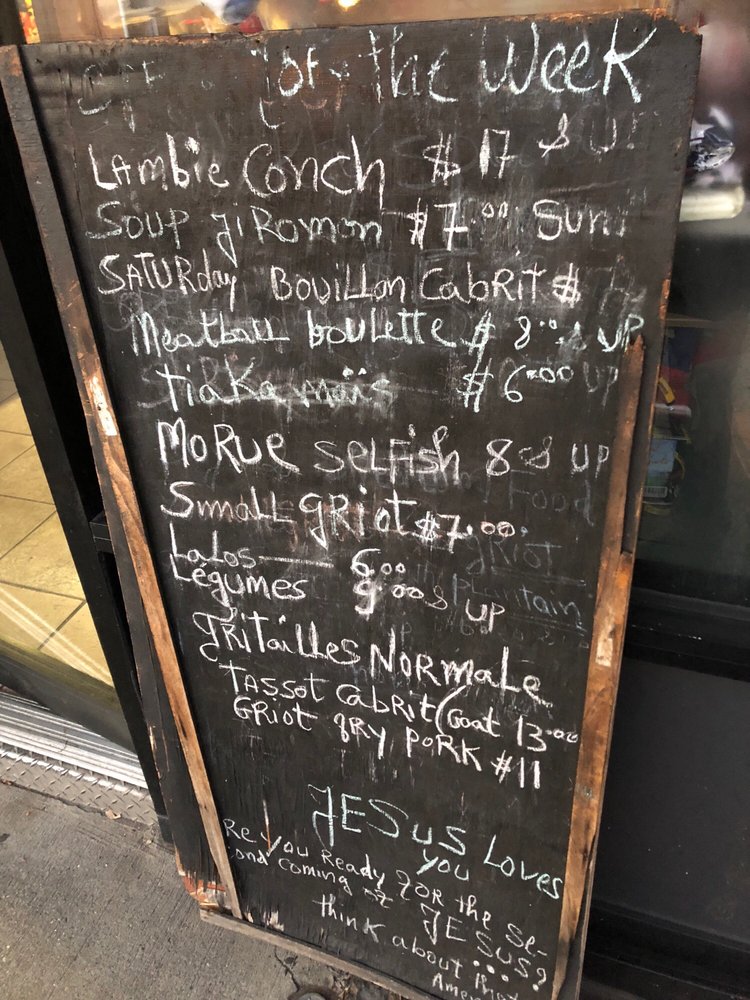 of the Week
LAMBie Conch $17 & UP
Soup JiRomon $7.00 Sun
SATURday BOUILLON CABRIT $
Meatball boulette $ 8.00 & UP
tiaka maïs $6.00 UP
MORUE SELFISH 8 & UP
Small GRiot $7.00
Lalos — 6.00
Légumes 9.00 & UP
FRITAILLES NORMALE
TASSOT CABRIT (Goat 13.00
GRiot FRY PORK #11
JESUS Loves
you
Re you Ready FOR the Se-
cond coming of JESUS?
think about that
Amen